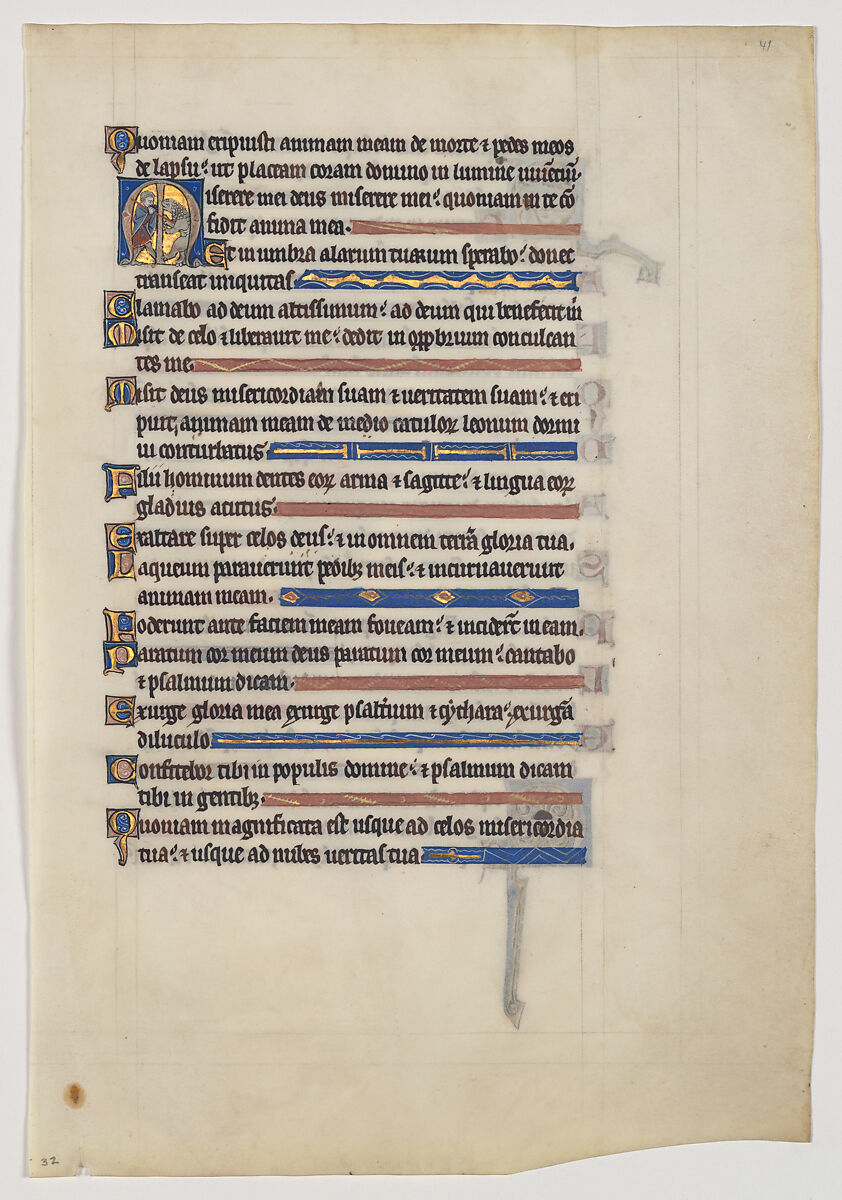 41
Quoniam eripuisti animam meam de morte ⁊ pedes meos
de lapsu: ut placeam coram domino in lumine uiuẽtiũ.
Miserere mei deus miserere mei: quoniam in te cõ
fidit anima mea.
Et in umbra alarum tuarum sperabo: donec
transeat iniquitas.
Clamabo ad deum altissimum: ad deum qui benefecit m̃
Misit de celo ⁊ liberauit me: dedit in opprobrium conculcan
tes me.
Misit deus misericordiam suam ⁊ ueritatem suam: ⁊ eri
puit animam meam de medio catuloꝝ leonum dormi
ui conturbatus.
Filii hominum dentes eoꝝ arma ⁊ sagitte: ⁊ lingua eoꝝ
gladius acutus.
Exaltare super celos deus: ⁊ in omnem terrã gloria tua.
Laqueum parauerunt pedibꝫ meis: ⁊ incuruauerunt
animam meam.
Foderunt ante faciem meam foueam: ⁊ inciderũt in eam.
Paratum cor meum deus paratum cor meum: cantabo
⁊ psalmum dicam.
Exurge gloria mea exurge psalterium ⁊ cythara: exurgã
diluculo.
Confitebor tibi in populis domine: ⁊ psalmum dicam
tibi in gentibꝫ.
Quoniam magnificata est usque ad celos misericordia
tua: ⁊ usque ad nubes ueritas tua
32